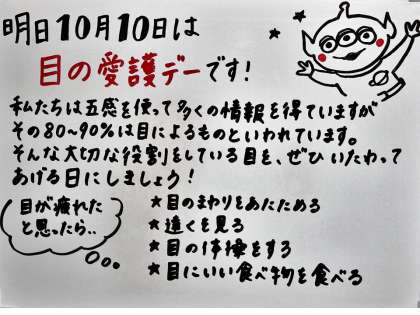 明日10月10日は
目の愛護デーです!
私たちは五感を使って多くの情報を得ていますが
その80~90%は目によるものといわれています。
そんな大切な役割をしている目を、ぜひいたわって
あげる日にしましょう!
目が疲れた
と思ったら..
★目のまわりをあたためる
★遠くを見る
★目の体操をする
★目にいい食べ物を食べる